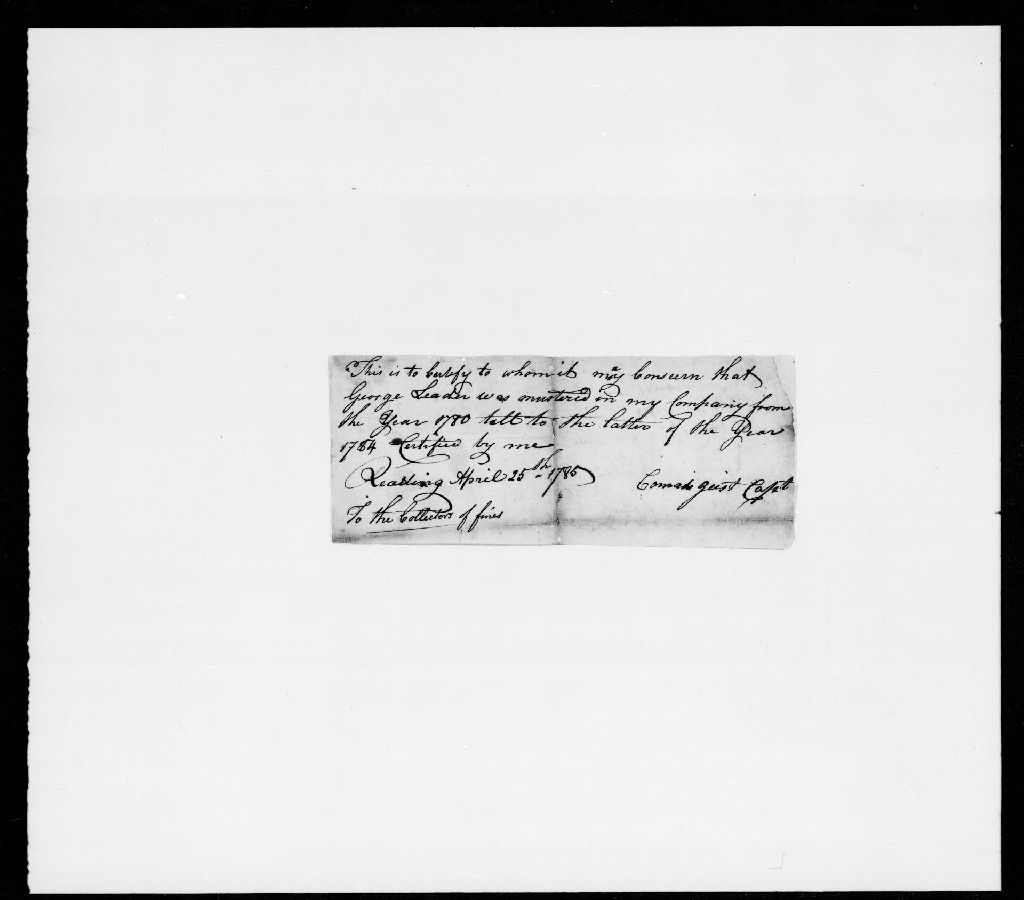 This is to Certify to whom it may Conscern that
George Leader was mustered in my Company from
the Year 1780 till to the latter of the Year
1784 Certified by me
Reading April 25th 1785 geist Capt
To the Collectors of fines